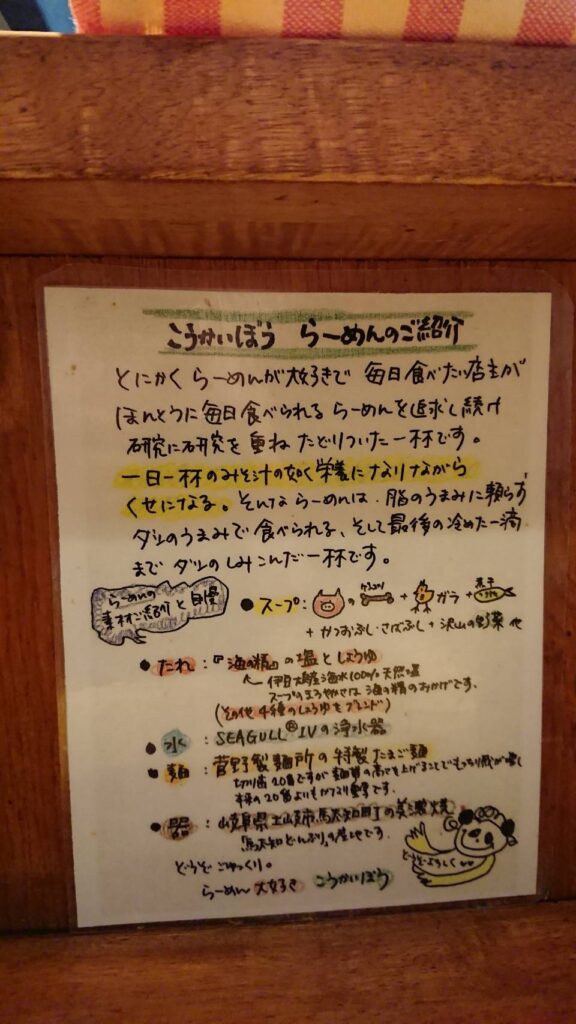 こうかいぼう らーめんのご紹介
とにかく らーめんが大好きで 毎日食べたい店主が
ほんとうに毎日食べられる らーめんを追求し続け
研究に研究を重ね たどりついた一杯です。
一日一杯のみそ汁の如く栄養になりながら
くせになる。そんならーめんは、脂のうまみに頼らず
ダシのうまみで食べられる、そして最後の冷めた一滴
まで ダシのしみこんだ一杯です。
らーめんの
素材ご紹介と自慢
●スープ: の ゲンコツ + ガラ + 煮干
+ かつおぶし・さばぶし + 沢山の野菜 他
●たれ:『海の精』の塩としょうゆ
伊豆大島産海水100%天然塩
スープのまろやかさは海の精のおかげです。
(その他 4種のしょうゆをブレンド)
●水:SEAGULL® IVの浄水器
●麺:菅野製麺所の特製たまご麺
切り歯20番ですが 麺帯の高さを上げることでもっちり感が増し
本来の20番よりもかなり重厚です。
●器:岐阜県土岐市駄知町の美濃焼
「駄知どんぶり」の産地です。
どうぞごゆっくり。
どうぞよろしく
らーめん大好き こうかいぼう